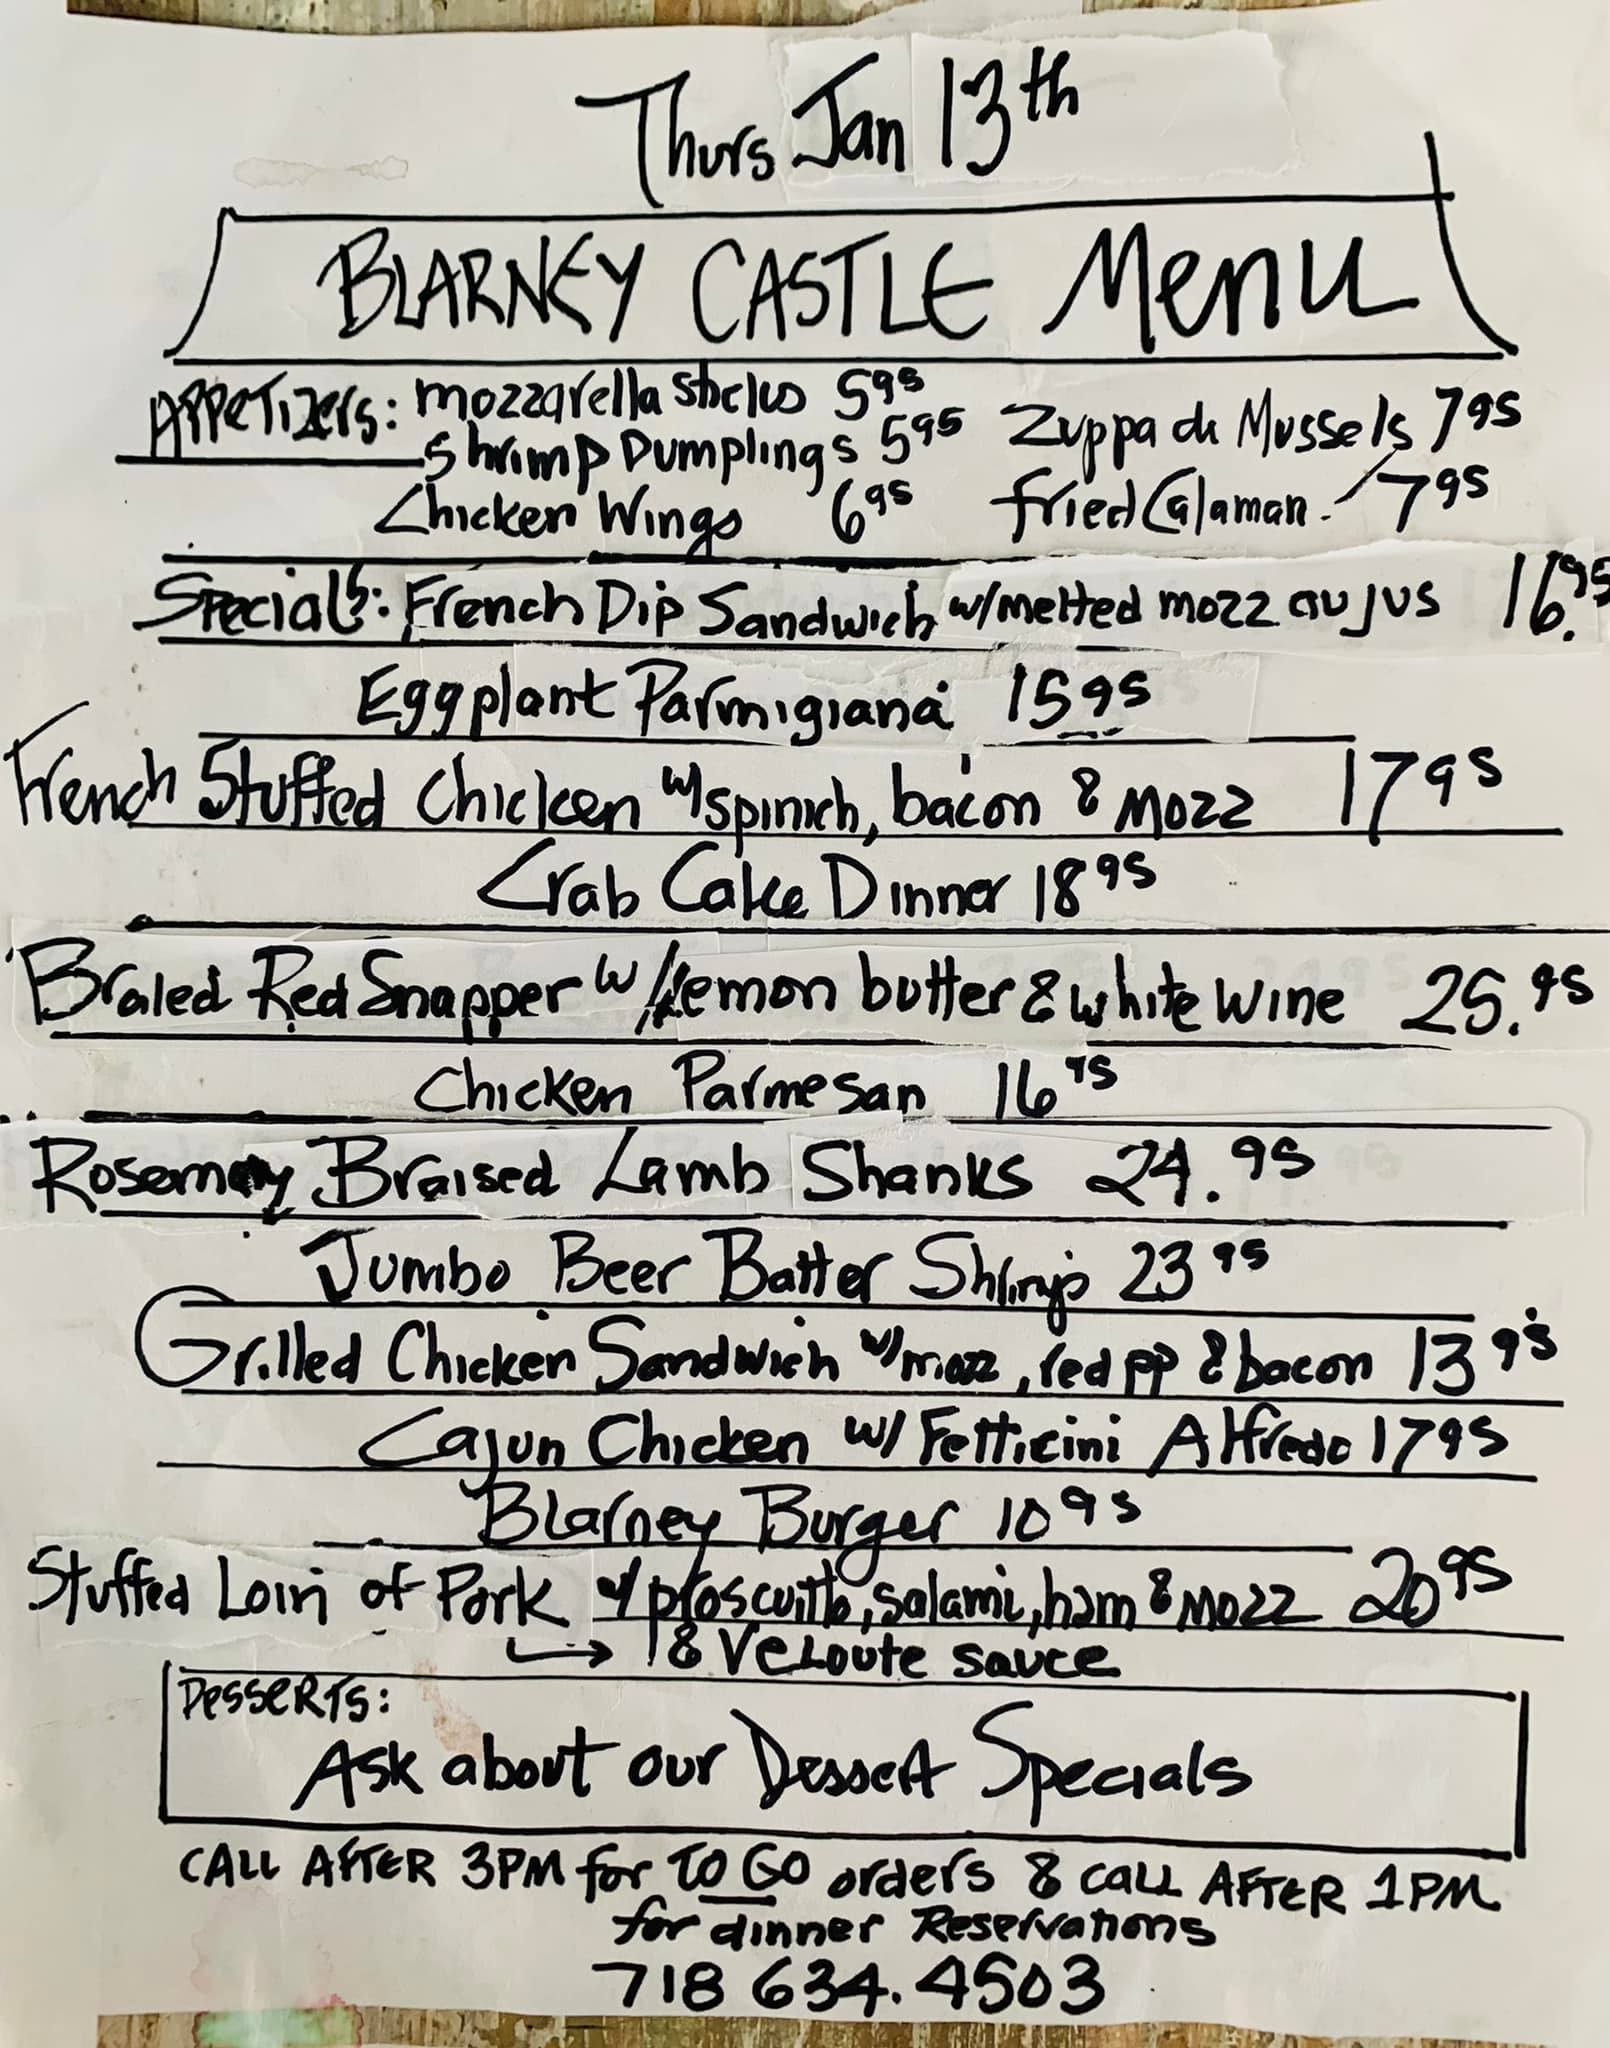 Thurs Jan 13th
BLARNEY CASTLE Menu
APPETIZERS: mozzarella sticks 5 95
Shrimp Dumplings 5 95
Chicken Wings 6 95
Zuppa di Mussels 7 95
fried Calamari 7 95
Specials: French Dip Sandwich w/melted mozz au jus 16.95
Eggplant Parmigiana 15 95
French Stuffed Chicken w/spinich, bacon & mozz 17 95
Crab Cake Dinner 18 95
Braled Red Snapper w/lemon butter & white wine 25.95
Chicken Parmesan 16 95
Rosemary Braised Lamb Shanks 24.95
Jumbo Beer Batter Shrimp 23 95
Grilled Chicken Sandwich w/mozz, red pp & bacon 13 95
Cajun Chicken w/ Fetticini Alfredo 17 95
Blarney Burger 10 95
Stuffed Loin of Pork w/ proscuitto, salami, ham & mozz 20 95
→ & Veloute sauce
DESSERTS:
Ask about our Dessert Specials
CALL AFTER 3PM for TO GO orders & CALL AFTER 1PM
for dinner Reservations
718 634.4503